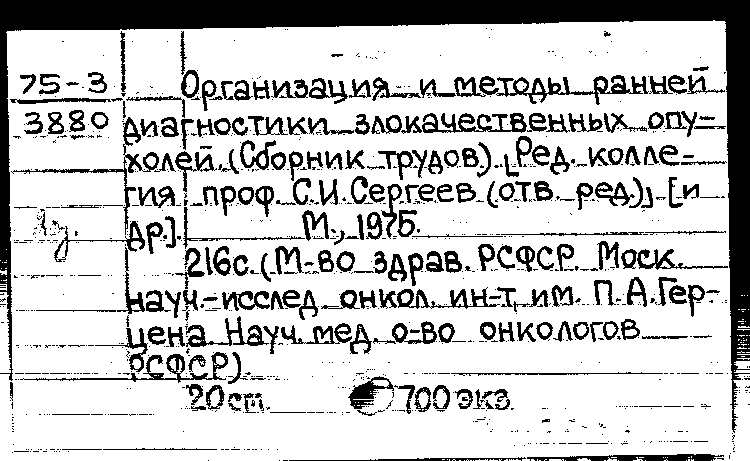 75-3 Организация и методы ранней
3880 диагностики злокачественных опу-
холей. (Сборник трудов). [Ред. колле-
гия проф. С.И.Сергеев (отв. ред.)] [и
др.]. М., 1975.
216с. (М-во здрав. РСФСР. Моск.
науч.-исслед. онкол. ин-т им. П.А.Гер-
цена. Науч. мед. о-во онкологов
РСФСР).
20см. 700 экз.